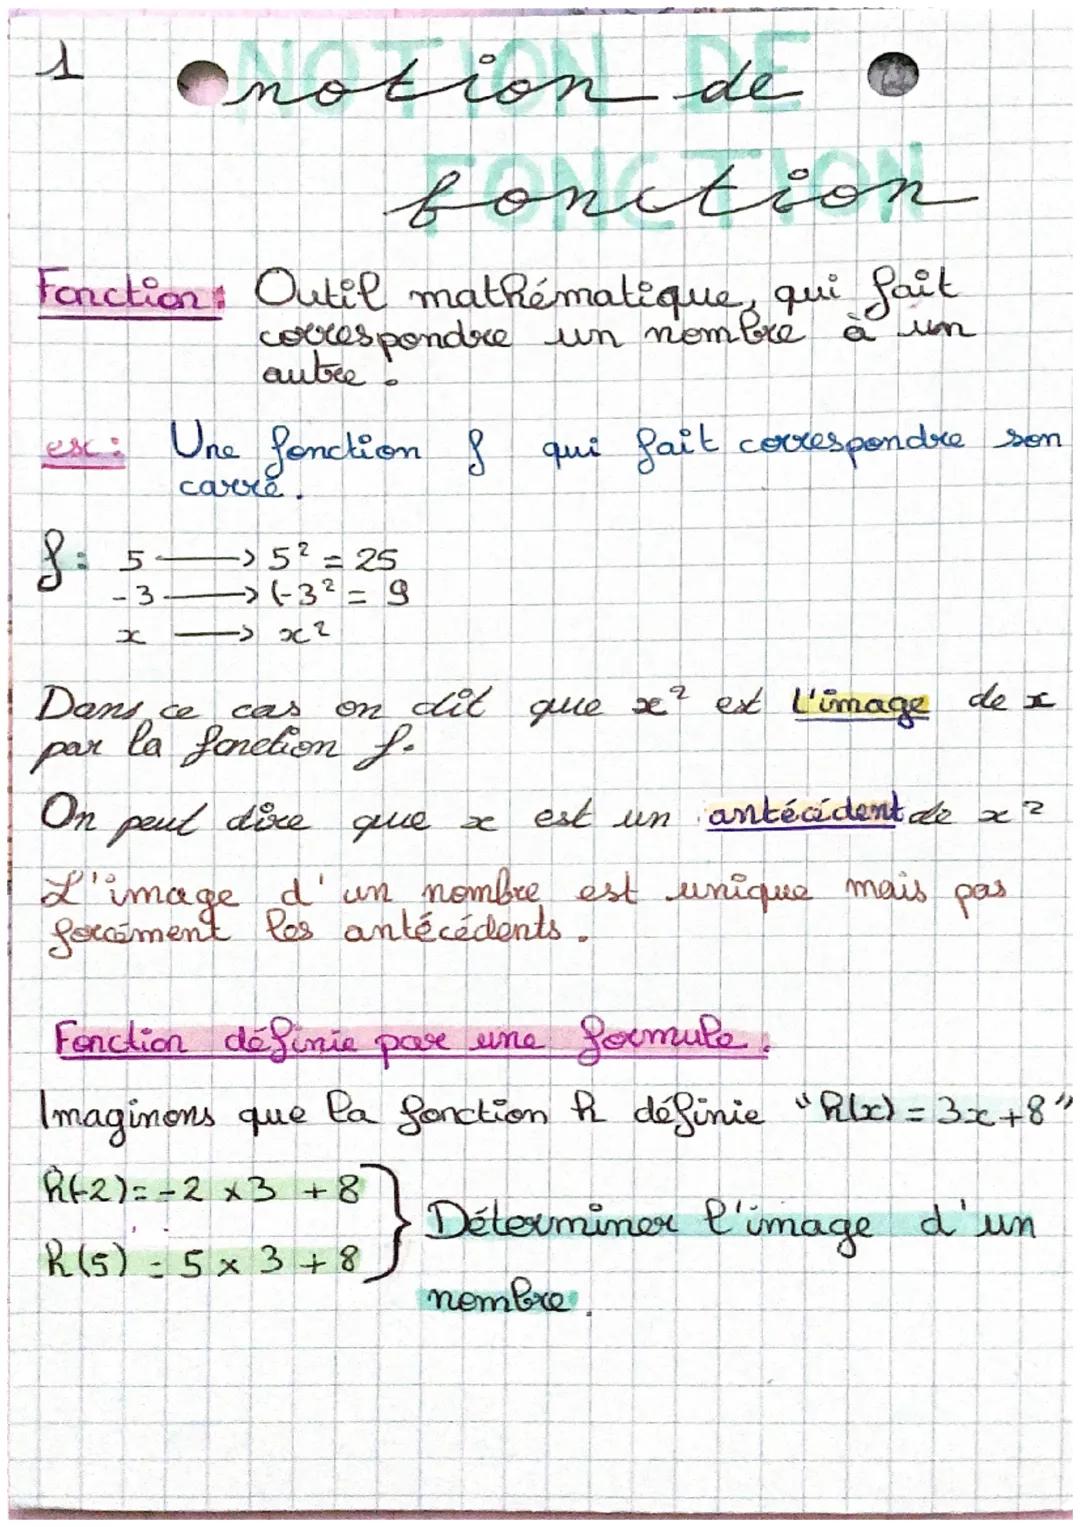 1
NOTION DE
notion de
FONCTION
fonction
Fonction : Outil mathématique, qui fait
correspondre un nombre à un
autre.
ex : Une fonction f qui fait correspondre son
carré.
f : 5 → 5² = 25
-3 → (-3² = 9
x → x²
Dans ce cas on dit que x² est l'image de x
par la fonction f.
On peut dire que x est un antécédent de x²
L'image d'un nombre est unique mais pas
forcément les antécédents.
Fonction définie par une formule.
Imaginons que la fonction h définie "h(x) = 3x+8"
h(-2) = -2 x 3 + 8
Déterminer l'image d'un
h(5) = 5 x 3 + 8
nombre.